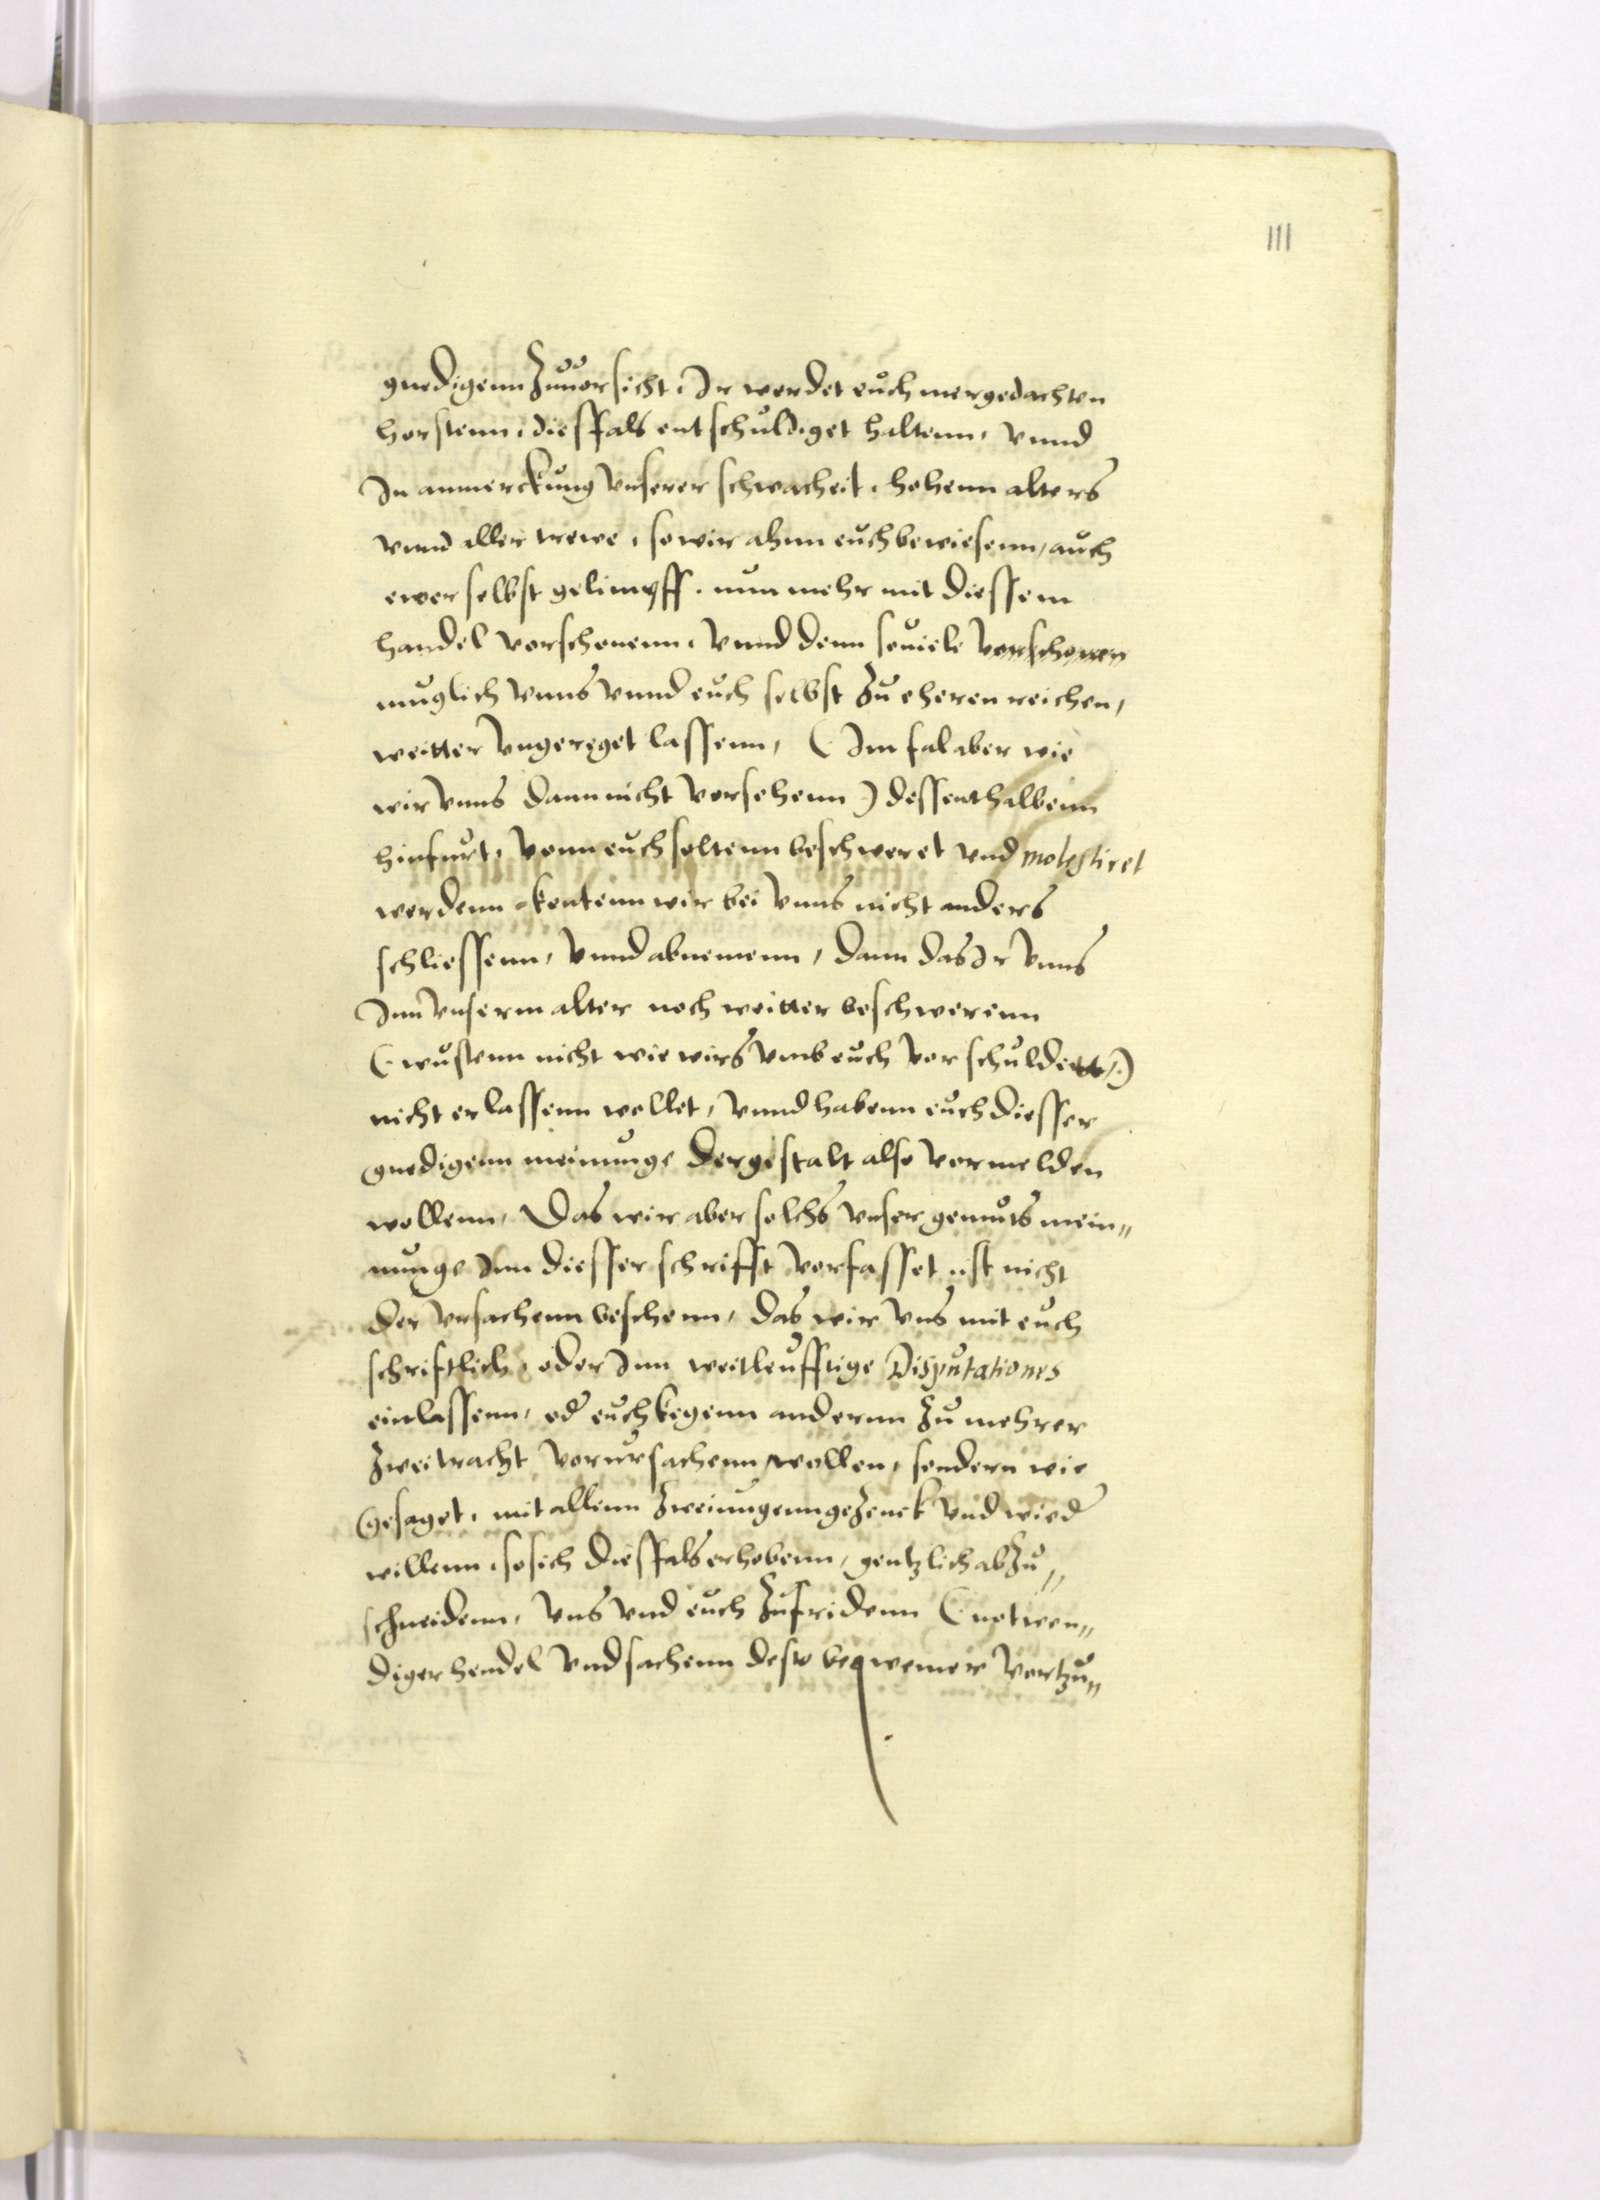 111
gnedigenn Zuuorsicht, Ir werdet euch mergedachten
horstenn, diesfals entschuldiget haltenn, vnnd
In anmerckung vnserer schwacheit, hohenn alters
vnnd aller trewe, so wir ahnn euch bewiesenn, auch
ewer selbst gelimpff, nun mehr mit diessem
handel vorschonenn, vnnd denn souiele vorschonen
muglich vnns vnnd euch selbst zu eheren reichen,
weitter vngereget lassenn, (Im fal aber wie
wir vnns dann nicht vorsehenn) dessenthalbenn
hinfurt, vonn euch soltenn beschweret vnd molestiret
werdenn kontenn wir bei vnns nicht anders
schliessenn, vnnd abnemenn, dann das Ir vnns
Inn vnserm alter noch weitter beschwerenn
(wustenn nicht wie wirs vmb euch vorschuldett,)
nicht erlassenn wollet, vnnd habenn euch diesser
gnedigenn meinunge dergestalt also vormelden
wollenn, Das wir aber solchs vnser gemuts mein„
nunge Inn diesser schrifft vorfasset ist nicht
der vrsachenn beschenn, das wir vns mit euch
schriftlich, oder Inn weitleufftige Disputationes
einlassenn, od euch kegenn andernn zu mehrer
zweitracht vorursachenn wollen, sondern wie
gesaget, mit allenn zweiungenn gezenck vnd wied
willenn, so sich diesfals erhobenn, gentzlich abzu„
schneidenn, vns vnd euch zufridenn (notwen„
diger hendel vnd sachenn desto beqwemer vortzu„